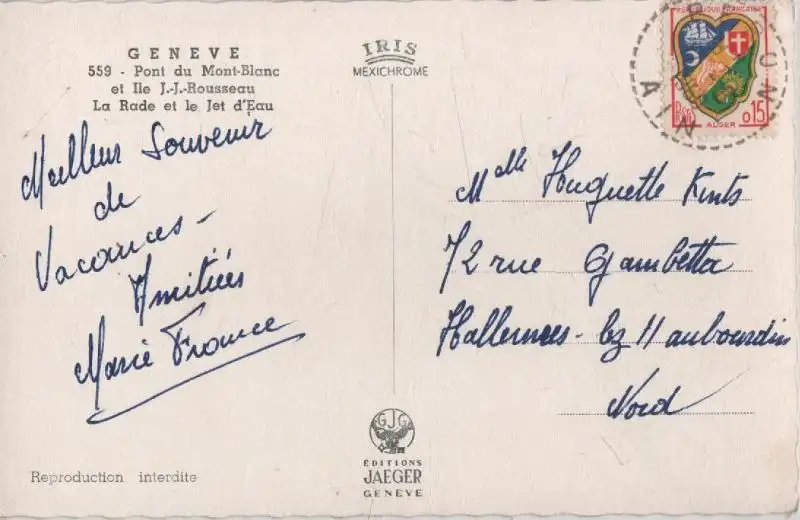 GENEVE
559 - Pont du Mont-Blanc
et Ile J.-J.-Rousseau
La Rade et le Jet d'Eau
IRIS
MEXICHROME
Meilleur Souvenir
de
Vacances -
Amitiés
Marie France
RÉPUBLIQUE FRANÇAISE
POSTES
ALGER
0,15
AIN
Mlle Huguette Kints
72 rue Gambetta
Hallennes - lez Haubourdin
Nord
GJG
ÉDITIONS
JAEGER
GENEVE
Reproduction interdite